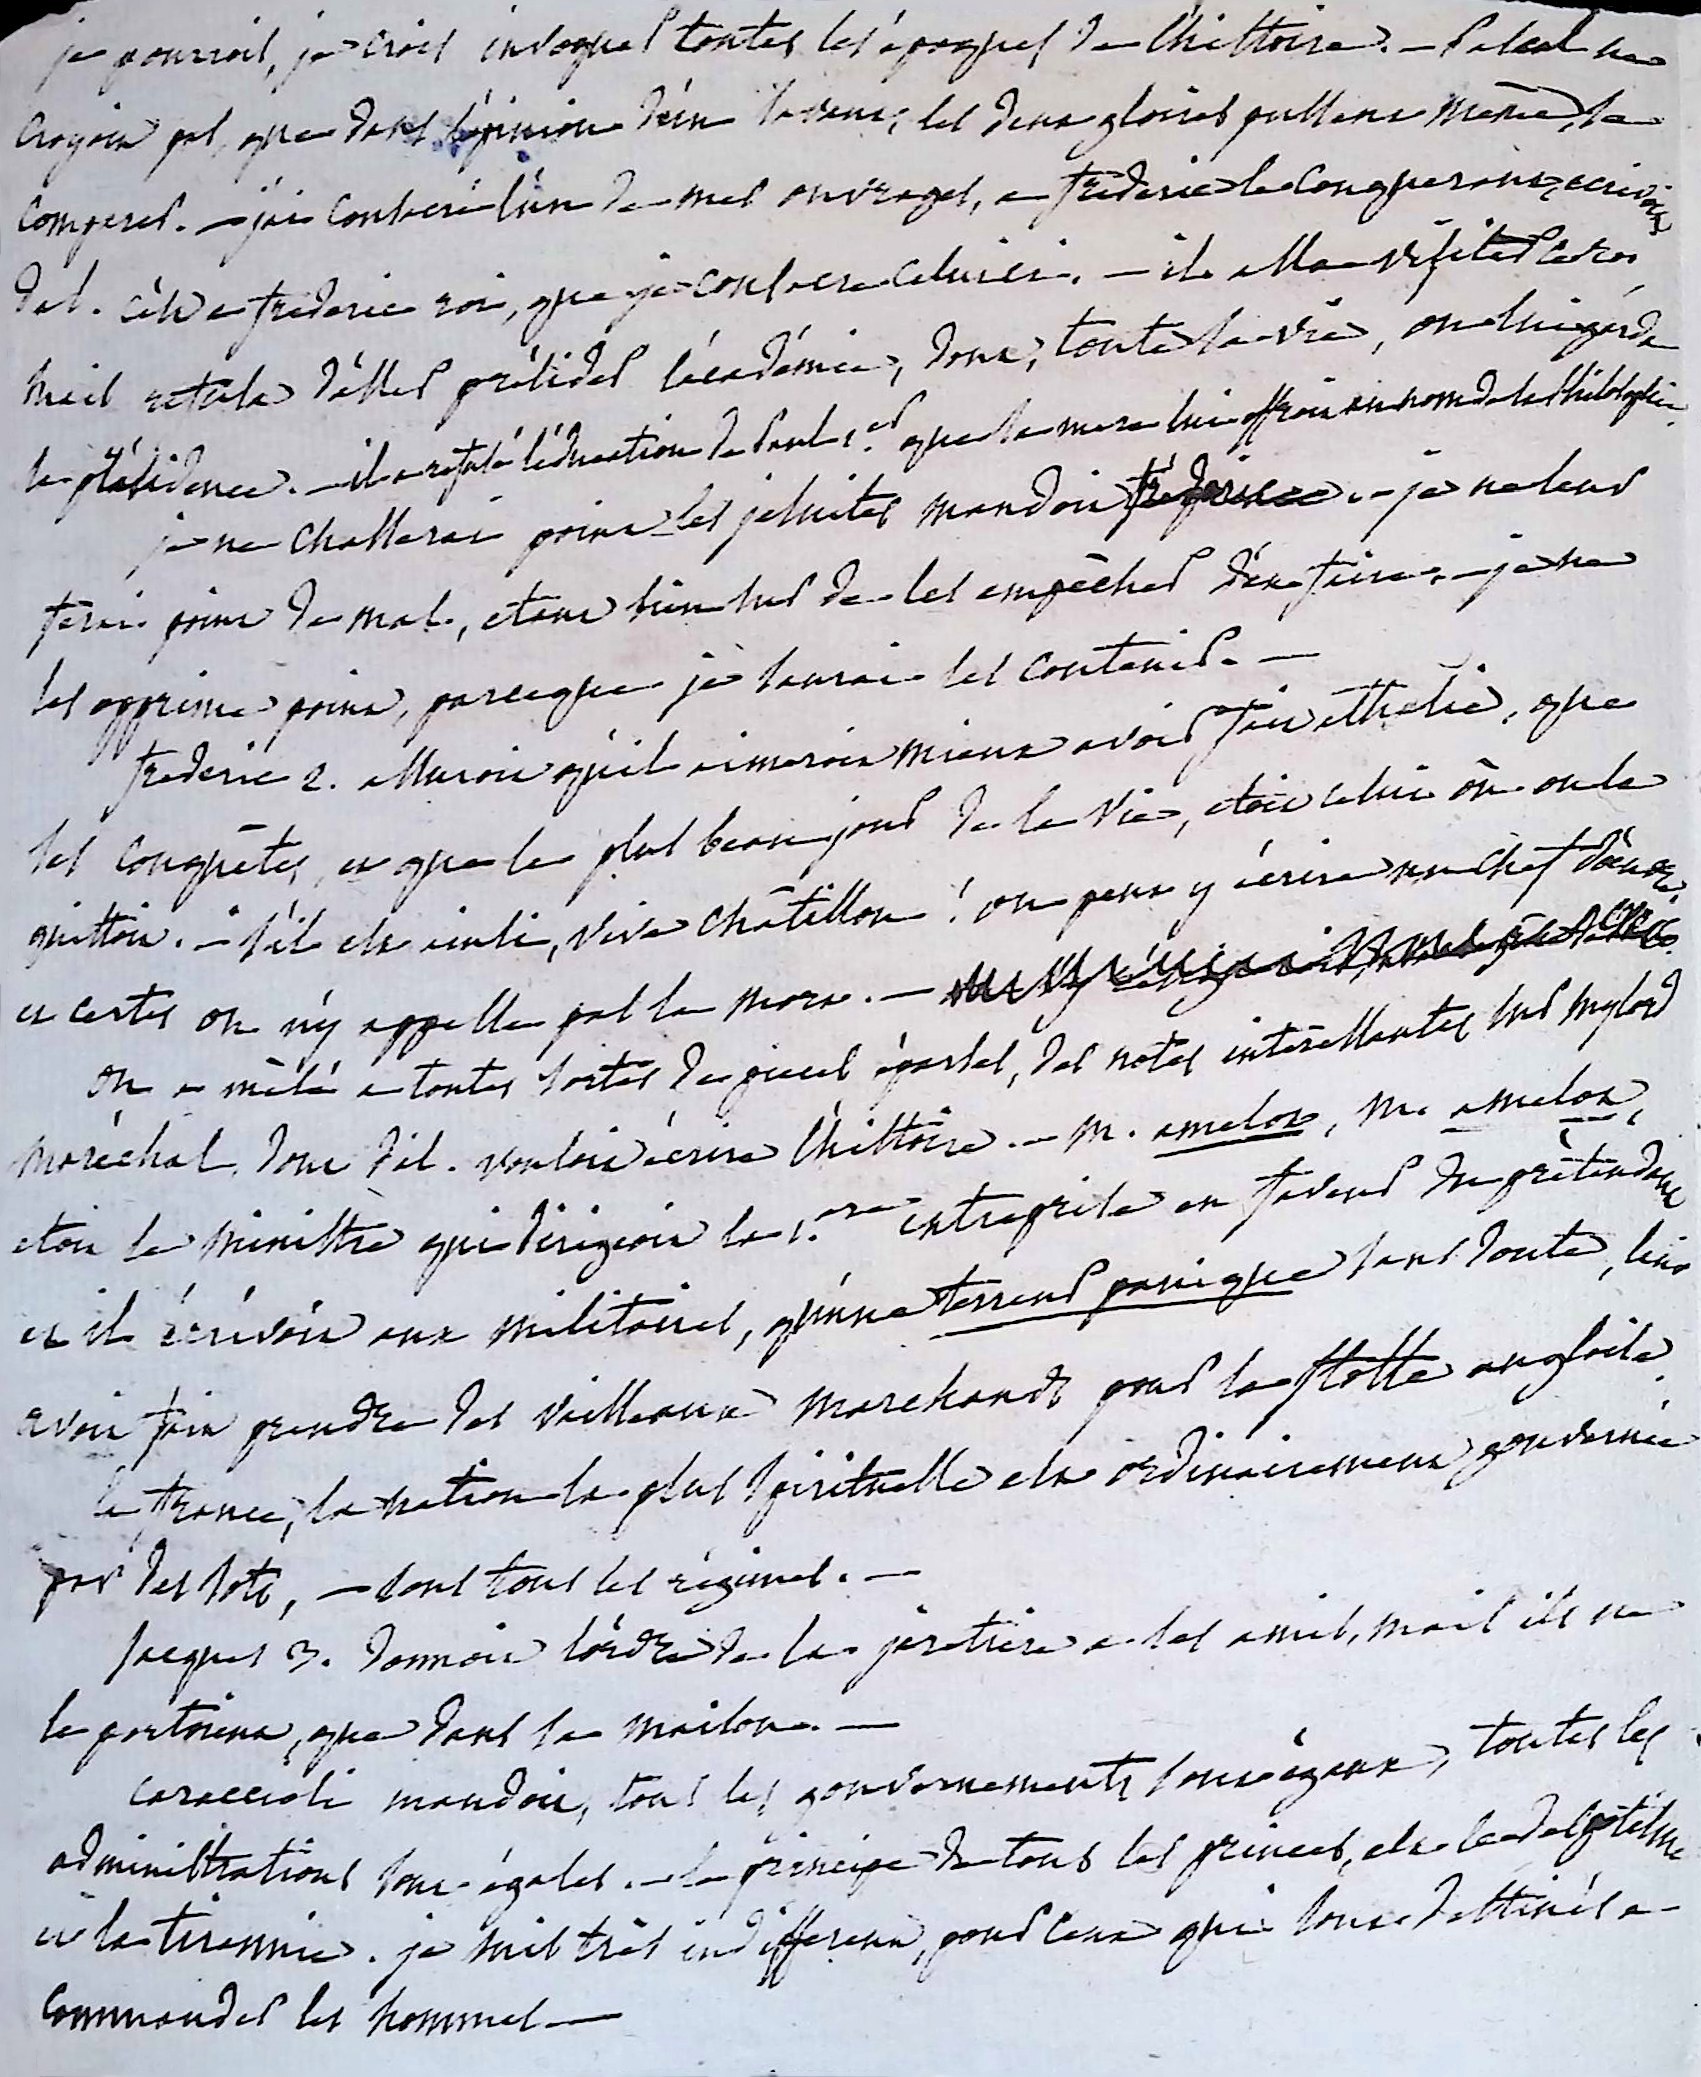 je pourrois, je crois invoquer toutes les époques de l'histoire. — Pascal ne
croyoit pas, que dans l'opinion d'un savant, les deux gloires pussent même, se
comparer. — j'ai consacré l'un de mes ouvrages, a frederic le conquerant, ecrivoit
dal. c'est a frederic roi, que je consacre celui ci. — il alla visiter ce roi,
mais refusa d'aller présider l'académie, dont, toute sa vie, on lui garda
la présidence. — il a refusé l'éducation de Paul 1.er que sa mere lui offroit au nom de la philosophie.
je ne chasserai point les jesuites mandoit fréderic. — je ne leur
ferai point de mal, etant bien sur de les empêcher d'en faire. — je ne
les opprime point, parceque je saurai les contenir. —
frederic 2. assuroit qu'il aimeroit mieux avoir fait athalie, que
ses conquêtes, et que le plus beau jour de la vie, etoit celui où on la
quittoit. — s'il est ainsi, vive châtillon ! on peut y écrire un chef d'œuvre,
et certes on n'y appelle pas la mort. —
on a mêlé a toutes sortes de pieces éparses, des notes intéressantes sur mylord
maréchal, dont dal. vouloit écrire l'histoire. — m. amelot, m. amelot,
etoit le ministre qui dirigeoit la 1.ere entreprise en faveur du prétendant
et il écrivoit aux militaires, qu'une terreur panique sans doute, leur
avoit fait prendre des vaisseaux marchands pour la flotte angloise.
la france, la nation la plus spirituelle est ordinairement gouvernée
par des sots, — sous tous les régimes. —
Jacques 3. donnoit l'ordre de la jaretiere a ses amis, mais ils ne
la portoient, que dans sa maison. —
caraccioli mandoit, tous les gouvernements sont égaux, toutes les
administrations sont égales. — le principe de tous les princes, est le despotisme
et la tirannie. je suis très indifferent, pour ceux qui sont destinés a
commander les hommes —